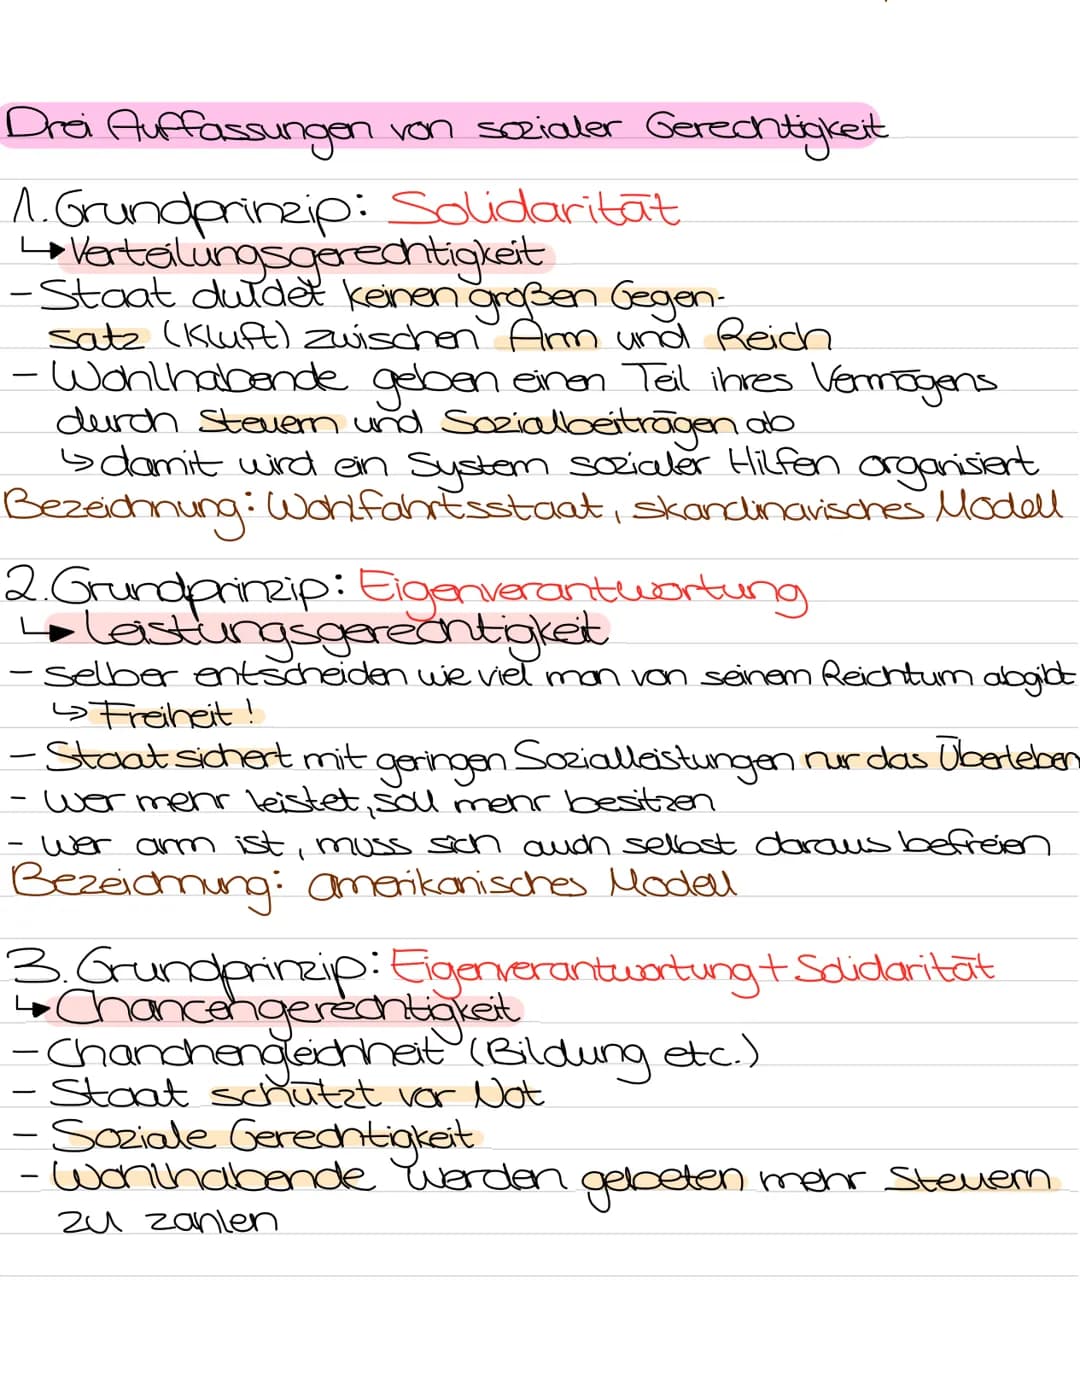 Drei Auffassungen von sozialer Gerechtigkeit
1. Grundprinzip: Solidarität
↳ Verteilungsgerechtigkeit
- Staat duldet keinen großen Gegen-
satz (Kluft) zwischen Arm und Reich
- Wohlhabende geben einen Teil ihres Vermögens
durch Steuern und Sozialbeiträgen ab
↳ damit wird ein System sozialer Hilfen organisiert
Bezeichnung: Wohlfahrtsstaat, skandinavisches Modell
2. Grundprinzip: Eigenverantwortung
↳ Leistungsgerechtigkeit
- selber entscheiden wie viel man von seinem Reichtum abgibt
↳ Freiheit!
- Staat sichert mit geringen Sozialleistungen nur das Überleben
- wer mehr leistet, soll mehr besitzen
- wer arm ist, muss sich auch selbst daraus befreien
Bezeichnung: amerikanisches Modell
3. Grundprinzip: Eigenverantwortung + Solidarität
↳ Chancengerechtigkeit
- Chanchengleichheit (Bildung etc.)
- Staat schützt vor Not
- Soziale Gerechtigkeit
- Wohlhabende werden gebeten mehr Steuern
zu zahlen